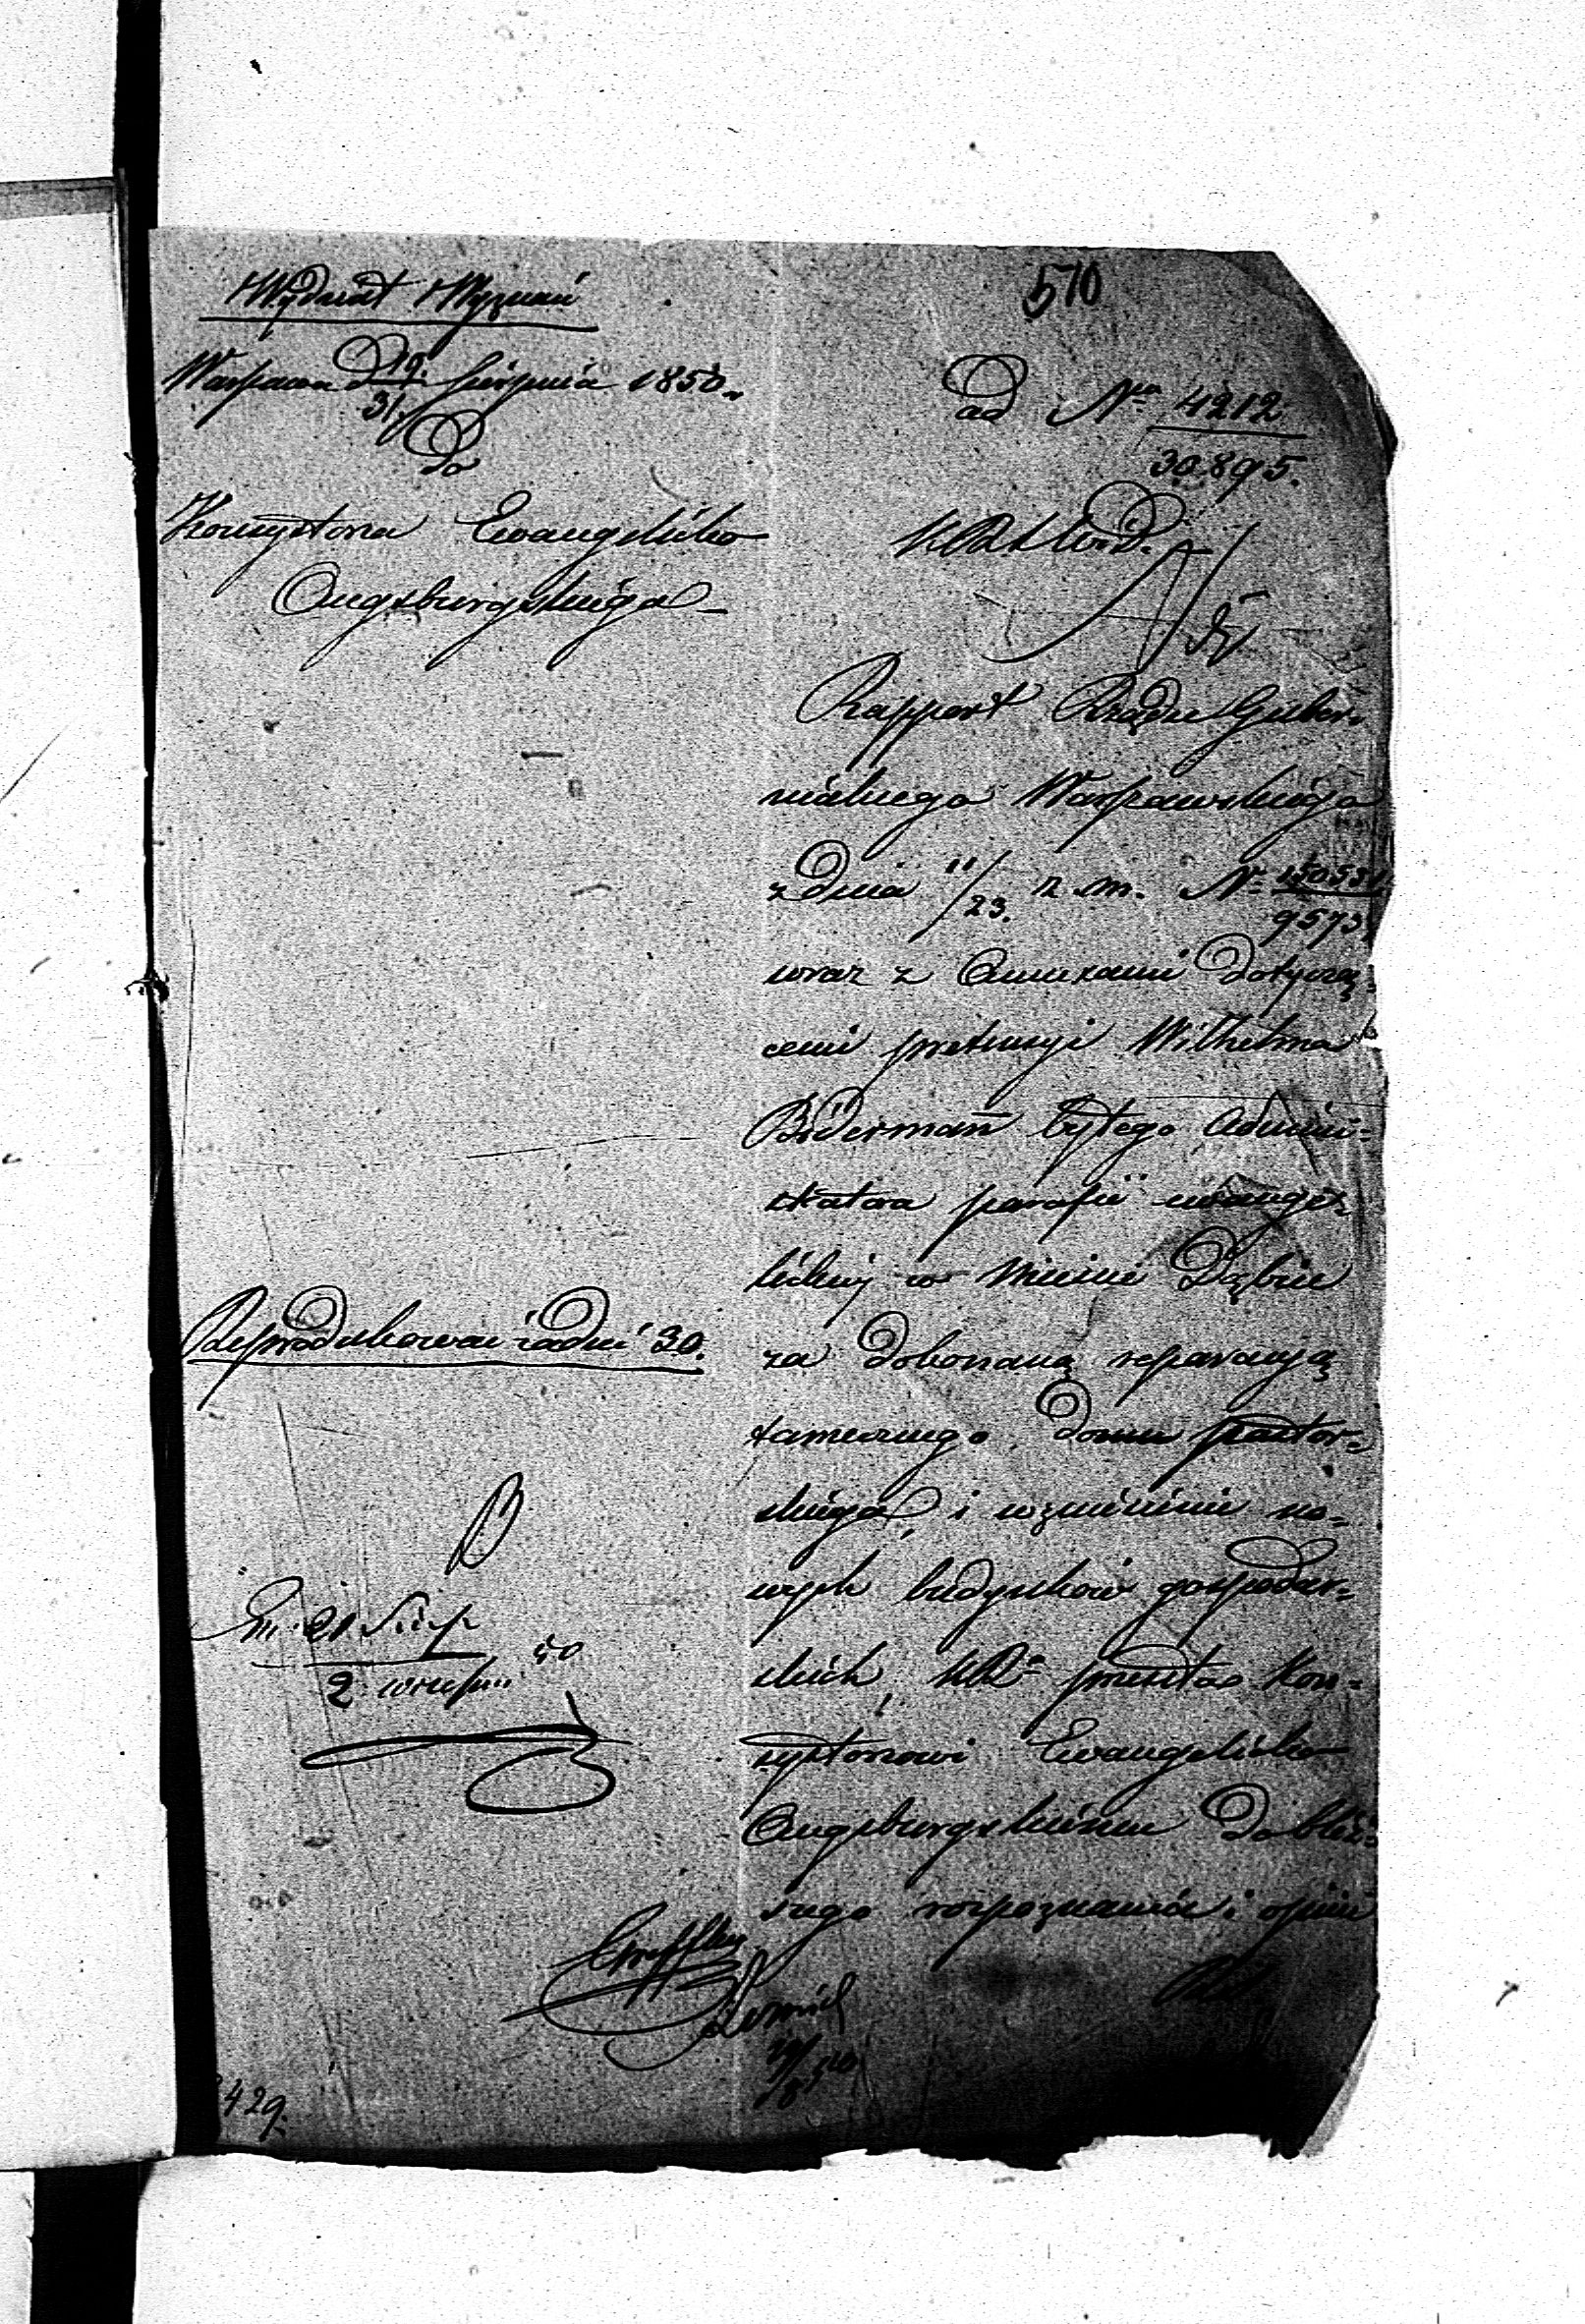 510
Wydział Wyznań
Warszawa d 19/31 Sierpnia 1850
Do
Konsystorza Ewangelicko
Augsburgskiego
ad Nro 4212
30.895.
Rapport Rządu Guber-
nialnego Warszawskiego
z dnia 11/23. r. m. No 150531
9573
wraz z Annexami dotyczą-
cemi pretensyi Wilhelma
Biderman byłego Admini-
stratora parafii ewange-
lickiej w Mieście Dąbiu
za dokonaną reparacyą
tamecznego domu pastor-
skiego, i wzniesienie no-
wych budynków gospodar-
skich, KR. przesyła Kon-
systorzowi Ewangelicko
Augsburgskiemu do bliż-
szego rozpoznania i opinii
Reprodukować za dni 30.
21 Sierp
2 wrześn 50
429.